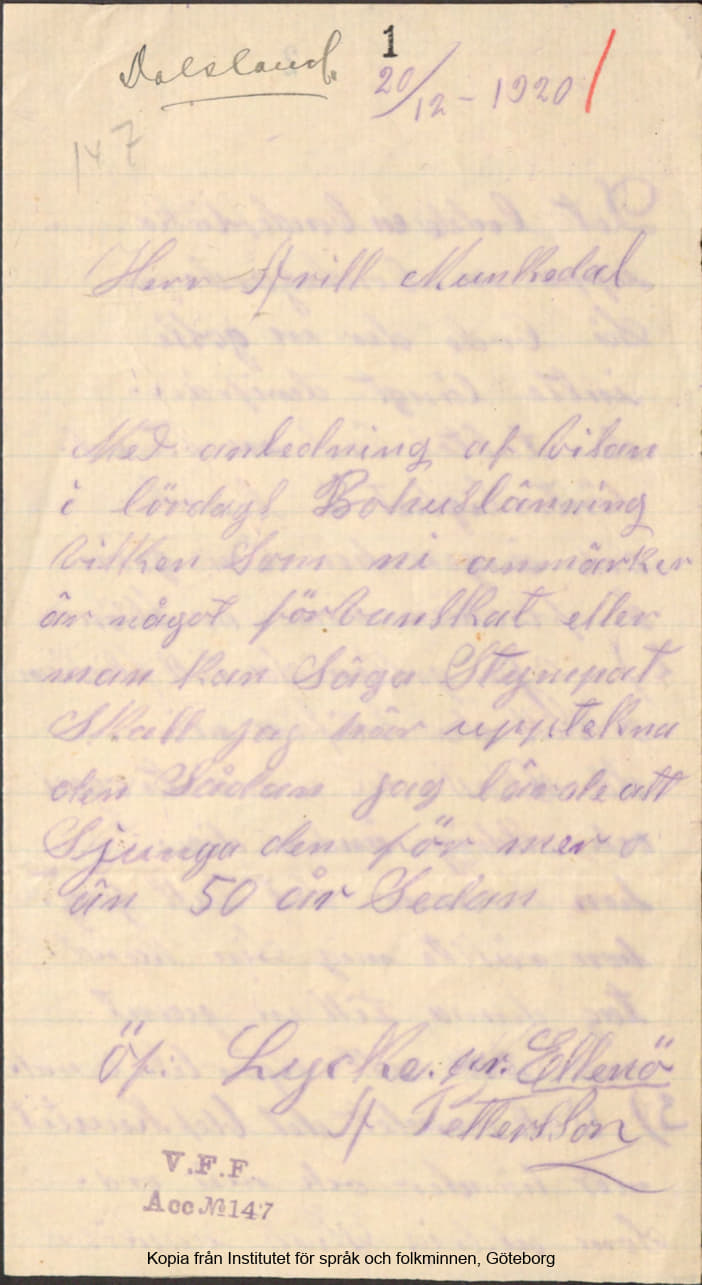 Dalsland.
1
20/12 - 1920
147
Herr Munkedal
Med anledning af visan
i lördags Bohusläning
vilken Som ni anmärker
är något förbanskat eller
man kan Säga Stympat
Skall jag här uppteкna
den Sådan jag lärde att
Sjunga den för mer
än 50 år Sedan
Öf. Lycke. pr. Ellenö
A Pettersson
V.F.F.
Acc № 147
Kopia från Institutet för språk och folkminnen, Göteborg